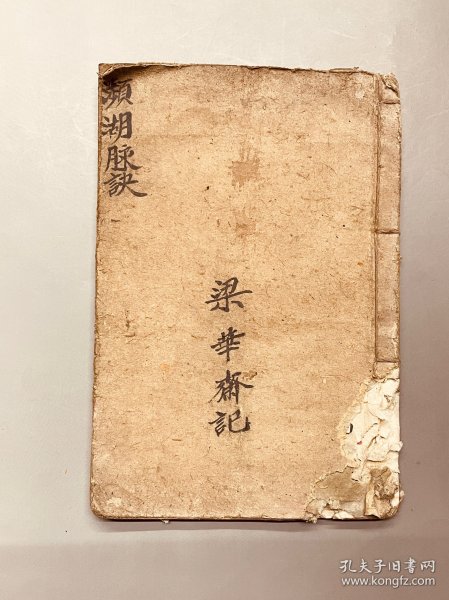 瀕湖脉訣
梁華齋記
孔夫子旧书网
www.kongfz.com